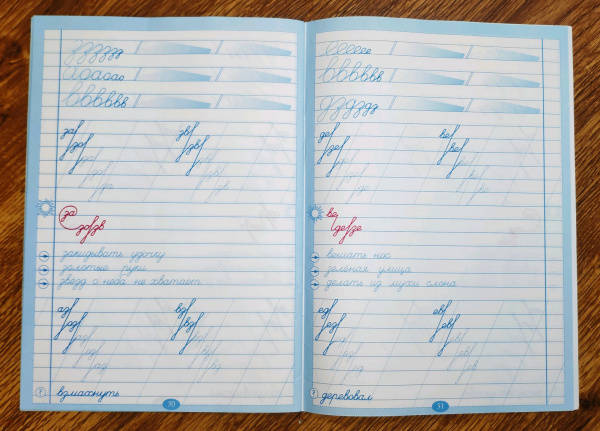 з з з з з з
а а а а а а
в в в в в в
за зв
за зв
за
зо зв
закидывать удочку
золотые руки
звезд с неба не хватает
аз вз
аз вз
взмахнуть
30
е е е е е е
в в в в в в
де ве
зе ве
ве
де зе
вешать нос
зеленая улица
делать из мухи слона
ед ев
ез ев
31